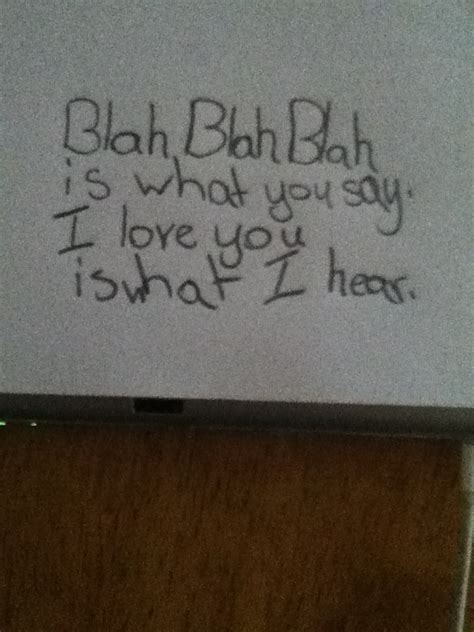 Blah Blah Blah
is what you say.
I love you
is what I hear.